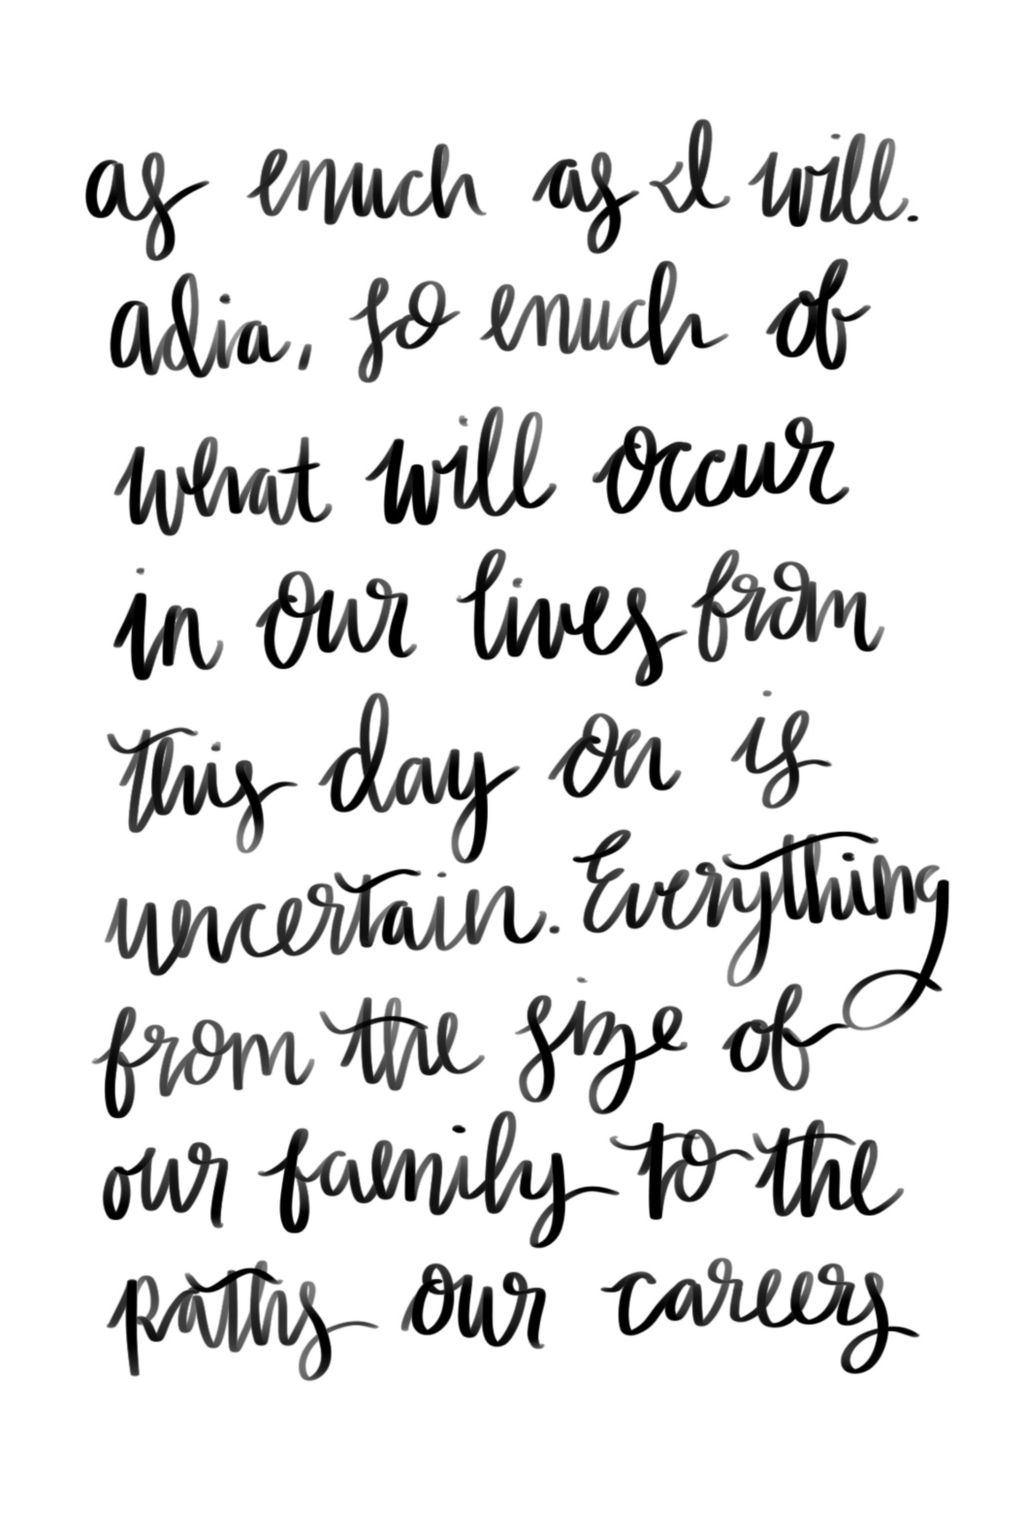 as much as I will.
Adia, so much of
what will occur
in our lives from
this day on is
uncertain. Everything
from the size of
our family to the
paths our careers